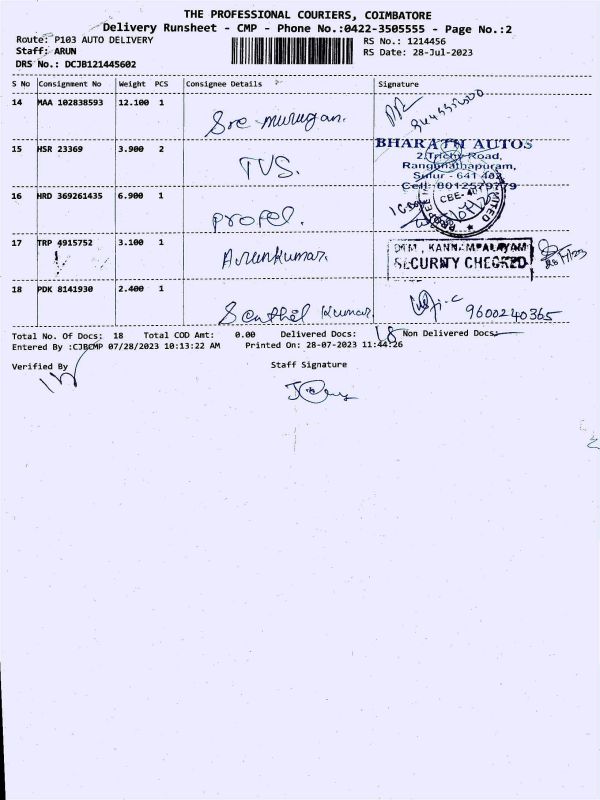 THE PROFESSIONAL COURIERS, COIMBATORE
Delivery Runsheet - CMP - Phone No.:0422-3505555 - Page No.:2
Route: P103 AUTO DELIVERY
RS No.: 1214456
Staff: ARUN
RS Date: 28-Jul-2023
DRS No.: DCJB121445602
S No Consignment No Weight PCS Consignee Details Signature
14 MAA 102838593 12.100 1 Sre murugan.
15 HSR 23369 3.900 2 TVS.
BHARATH AUTOS
2,Trichy Road,
Ranganathapuram,
Sulur - 641 402.
Cell: 8012579779
16 HRD 369261435 6.900 1 Propel.
CBE-
17 TRP 4915752 3.100 1 Arunkumar.
SECURITY CHECKED
18 PDK 8141930 2.400 1 Senthil Kumar. 9600240365
Total No. Of Docs: 18 Total COD Amt: 0.00 Delivered Docs: 18 Non Delivered Docs:
Entered By :CJBCMP 07/28/2023 10:13:22 AM Printed On: 28-07-2023 11:44:26
Verified By
Staff Signature